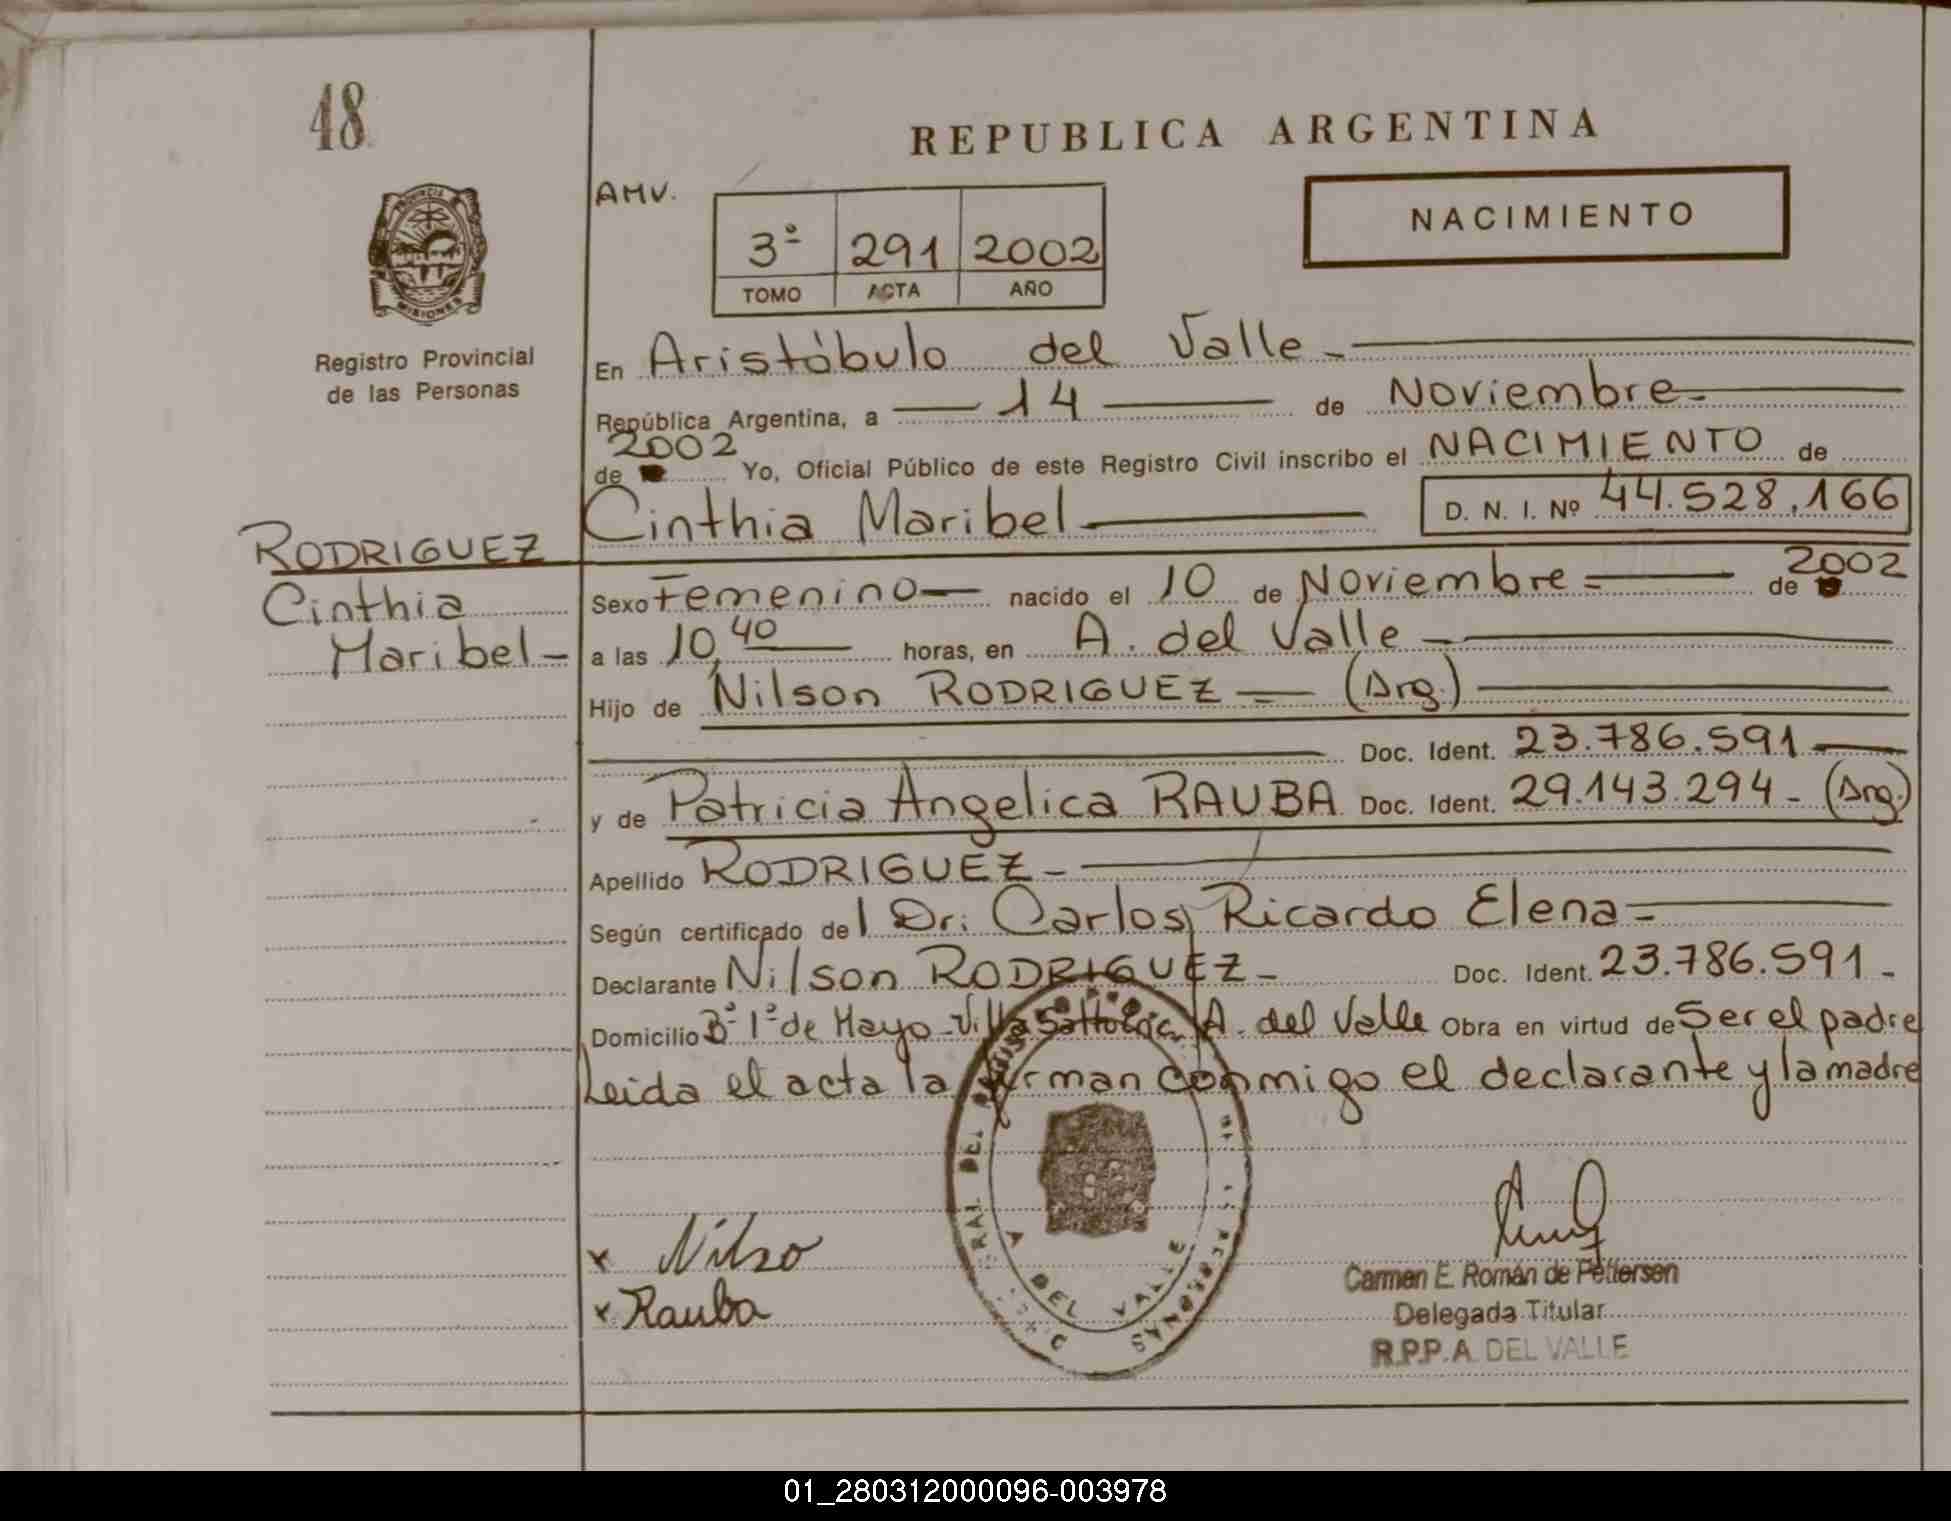 48
REPUBLICA ARGENTINA
AMV.
NACIMIENTO
3º 291 2002
TOMO ACTA AÑO
PROVINCIA
MISIONES
Registro Provincial
de las Personas
En Aristóbulo del Valle
República Argentina, a 14 de Noviembre
de 2002 Yo, Oficial Público de este Registro Civil inscribo el NACIMIENTO de
Cinthia Maribel D. N. I. Nº 44.528.166
RODRIGUEZ
Cinthia
Maribel
Sexo Femenino nacido el 10 de Noviembre de 2002
a las 10,40 horas, en A. del Valle
Hijo de Nilson RODRIGUEZ (Arg.)
Doc. Ident. 23.786.591
y de Patricia Angelica RAUBA Doc. Ident. 29.143.294 - (Arg.)
Apellido RODRIGUEZ
Según certificado del Dr. Carlos Ricardo Elena
Declarante Nilson RODRIGUEZ Doc. Ident. 23.786.591
Domicilio Bº 1º de Mayo - Villa A. del Valle Obra en virtud de Ser el padre
Leida el acta la firman conmigo el declarante y la madre
A DEL VALLE
PERSONAS
x Nilso
x Rauba
Carmen E. Román de Pettersen
Delegada Titular
R.P.P. A. DEL VALLE
01_280312000096-003978